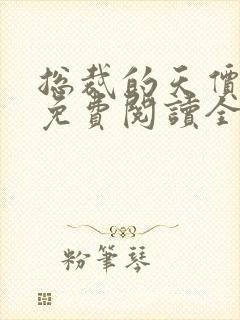 总裁的天價
免費閱讀全
粉筆琴